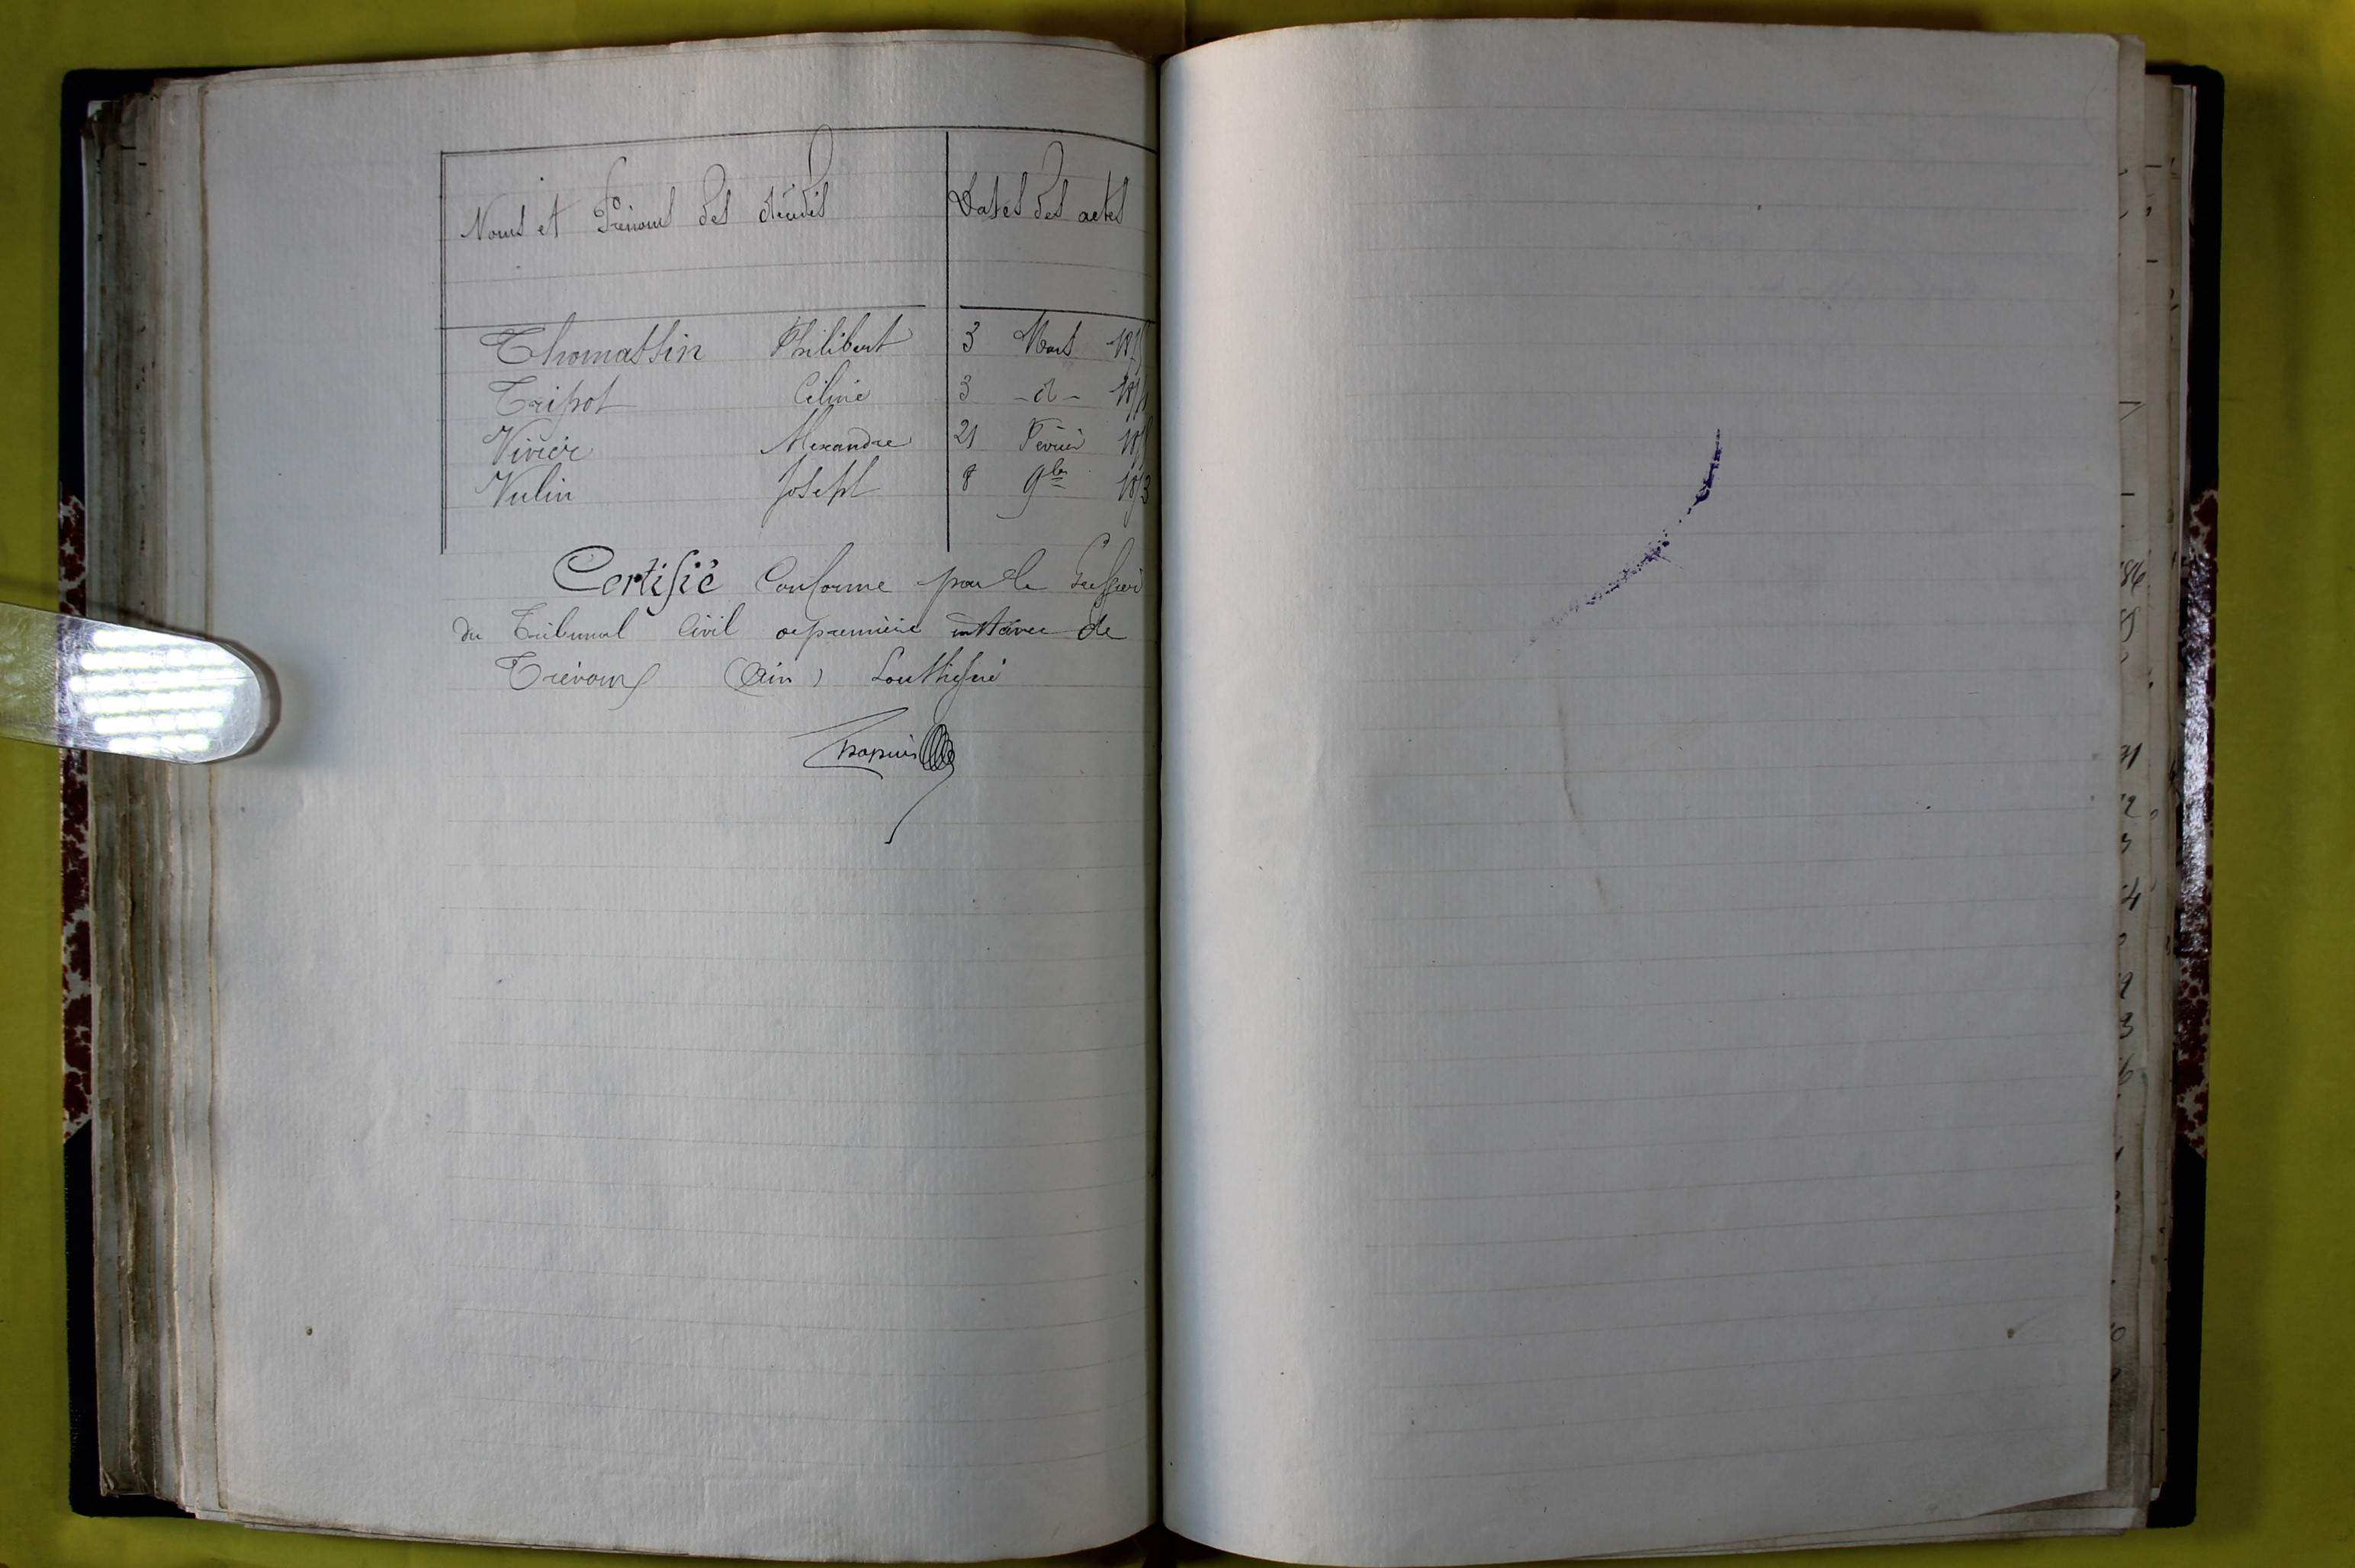 Noms et Prénoms des décédés Dates des actes
Thomassin Philibert 3 Mars
Tripot Céline 3 - d -
Vivier Alexandre 21 Février
Vulin Joseph 8 9bre
Certifié Conforme par le Greffier
du Tribunal Civil de première instance de
Trévoux (Ain) Soussigné